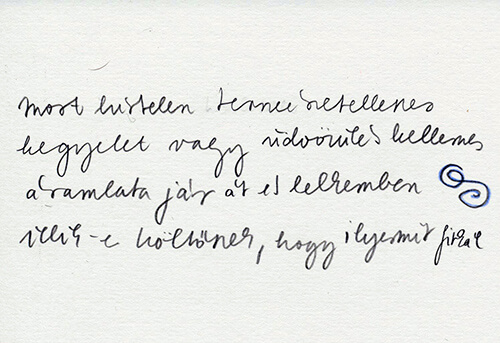 most hirtelen természetellenes
kegyelet vagy üdvözülés kellemes
áramlata jár át és lelkemben
illik-e költőnek, hogy ilyesmit firkál